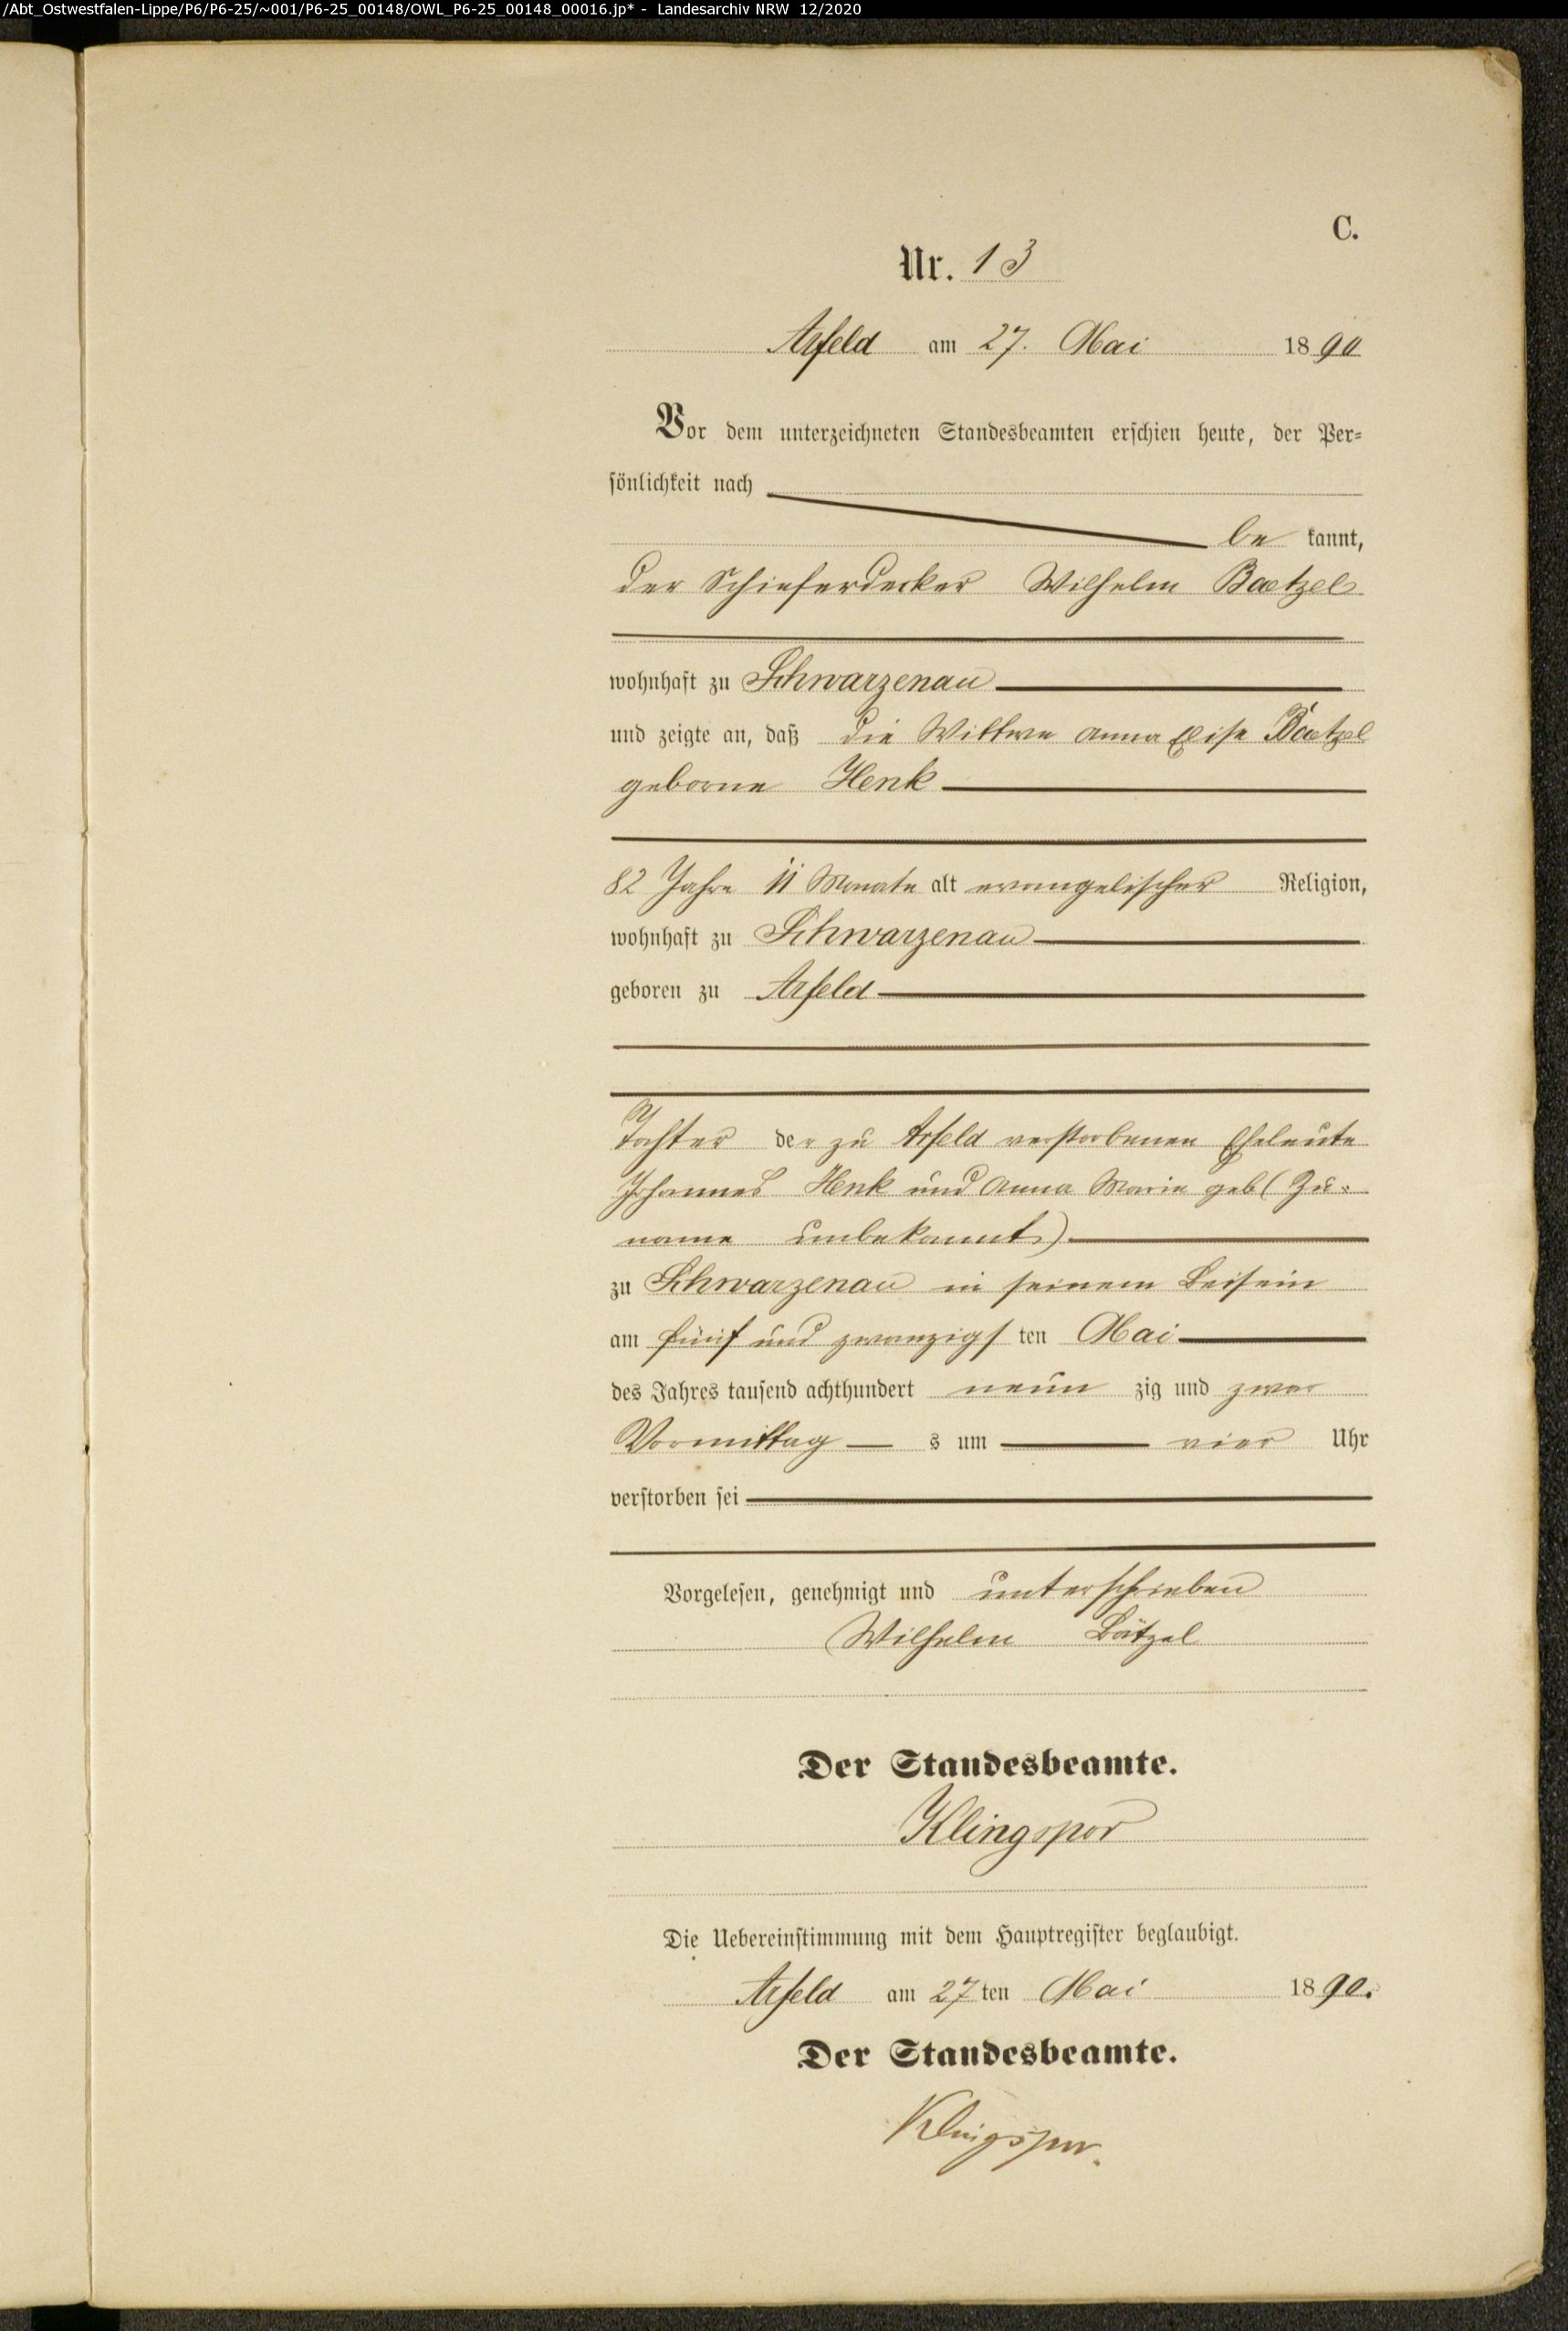 /Abt_Ostwestfalen-Lippe/P6/P6-25/~001/P6-25_00148/OWL_P6-25_00148_00016.jp* - Landesarchiv NRW 12/2020
C.
Nr. 13
Arfeld am 27. Mai 1890
Vor dem unterzeichneten Standesbeamten erschien heute, der Per-
sönlichkeit nach
be kannt,
der Schieferdecker Wilhelm Baetzel
wohnhaft zu Schwarzenau
und zeigte an, daß die Wittwe Anna Elise Baetzel
geborne Henk
82 Jahre 11 Monate alt evangelischer Religion,
wohnhaft zu Schwarzenau
geboren zu Arfeld
Tochter der zu Arfeld verstorbenen Eheleute
Johannes Henk und Anna Marie geb (Zu-
name unbekannt)
zu Schwarzenau in seinem Beisein
am fünf und zwanzigs ten Mai
des Jahres tausend achthundert neun zig und zwar
Vormittag s um vier Uhr
verstorben sei
Vorgelesen, genehmigt und unterschrieben
Wilhelm Bätzel
Der Standesbeamte.
Klingspor
Die Uebereinstimmung mit dem Hauptregister beglaubigt.
Arfeld am 27 ten Mai 1890.
Der Standesbeamte.
Klingspor.